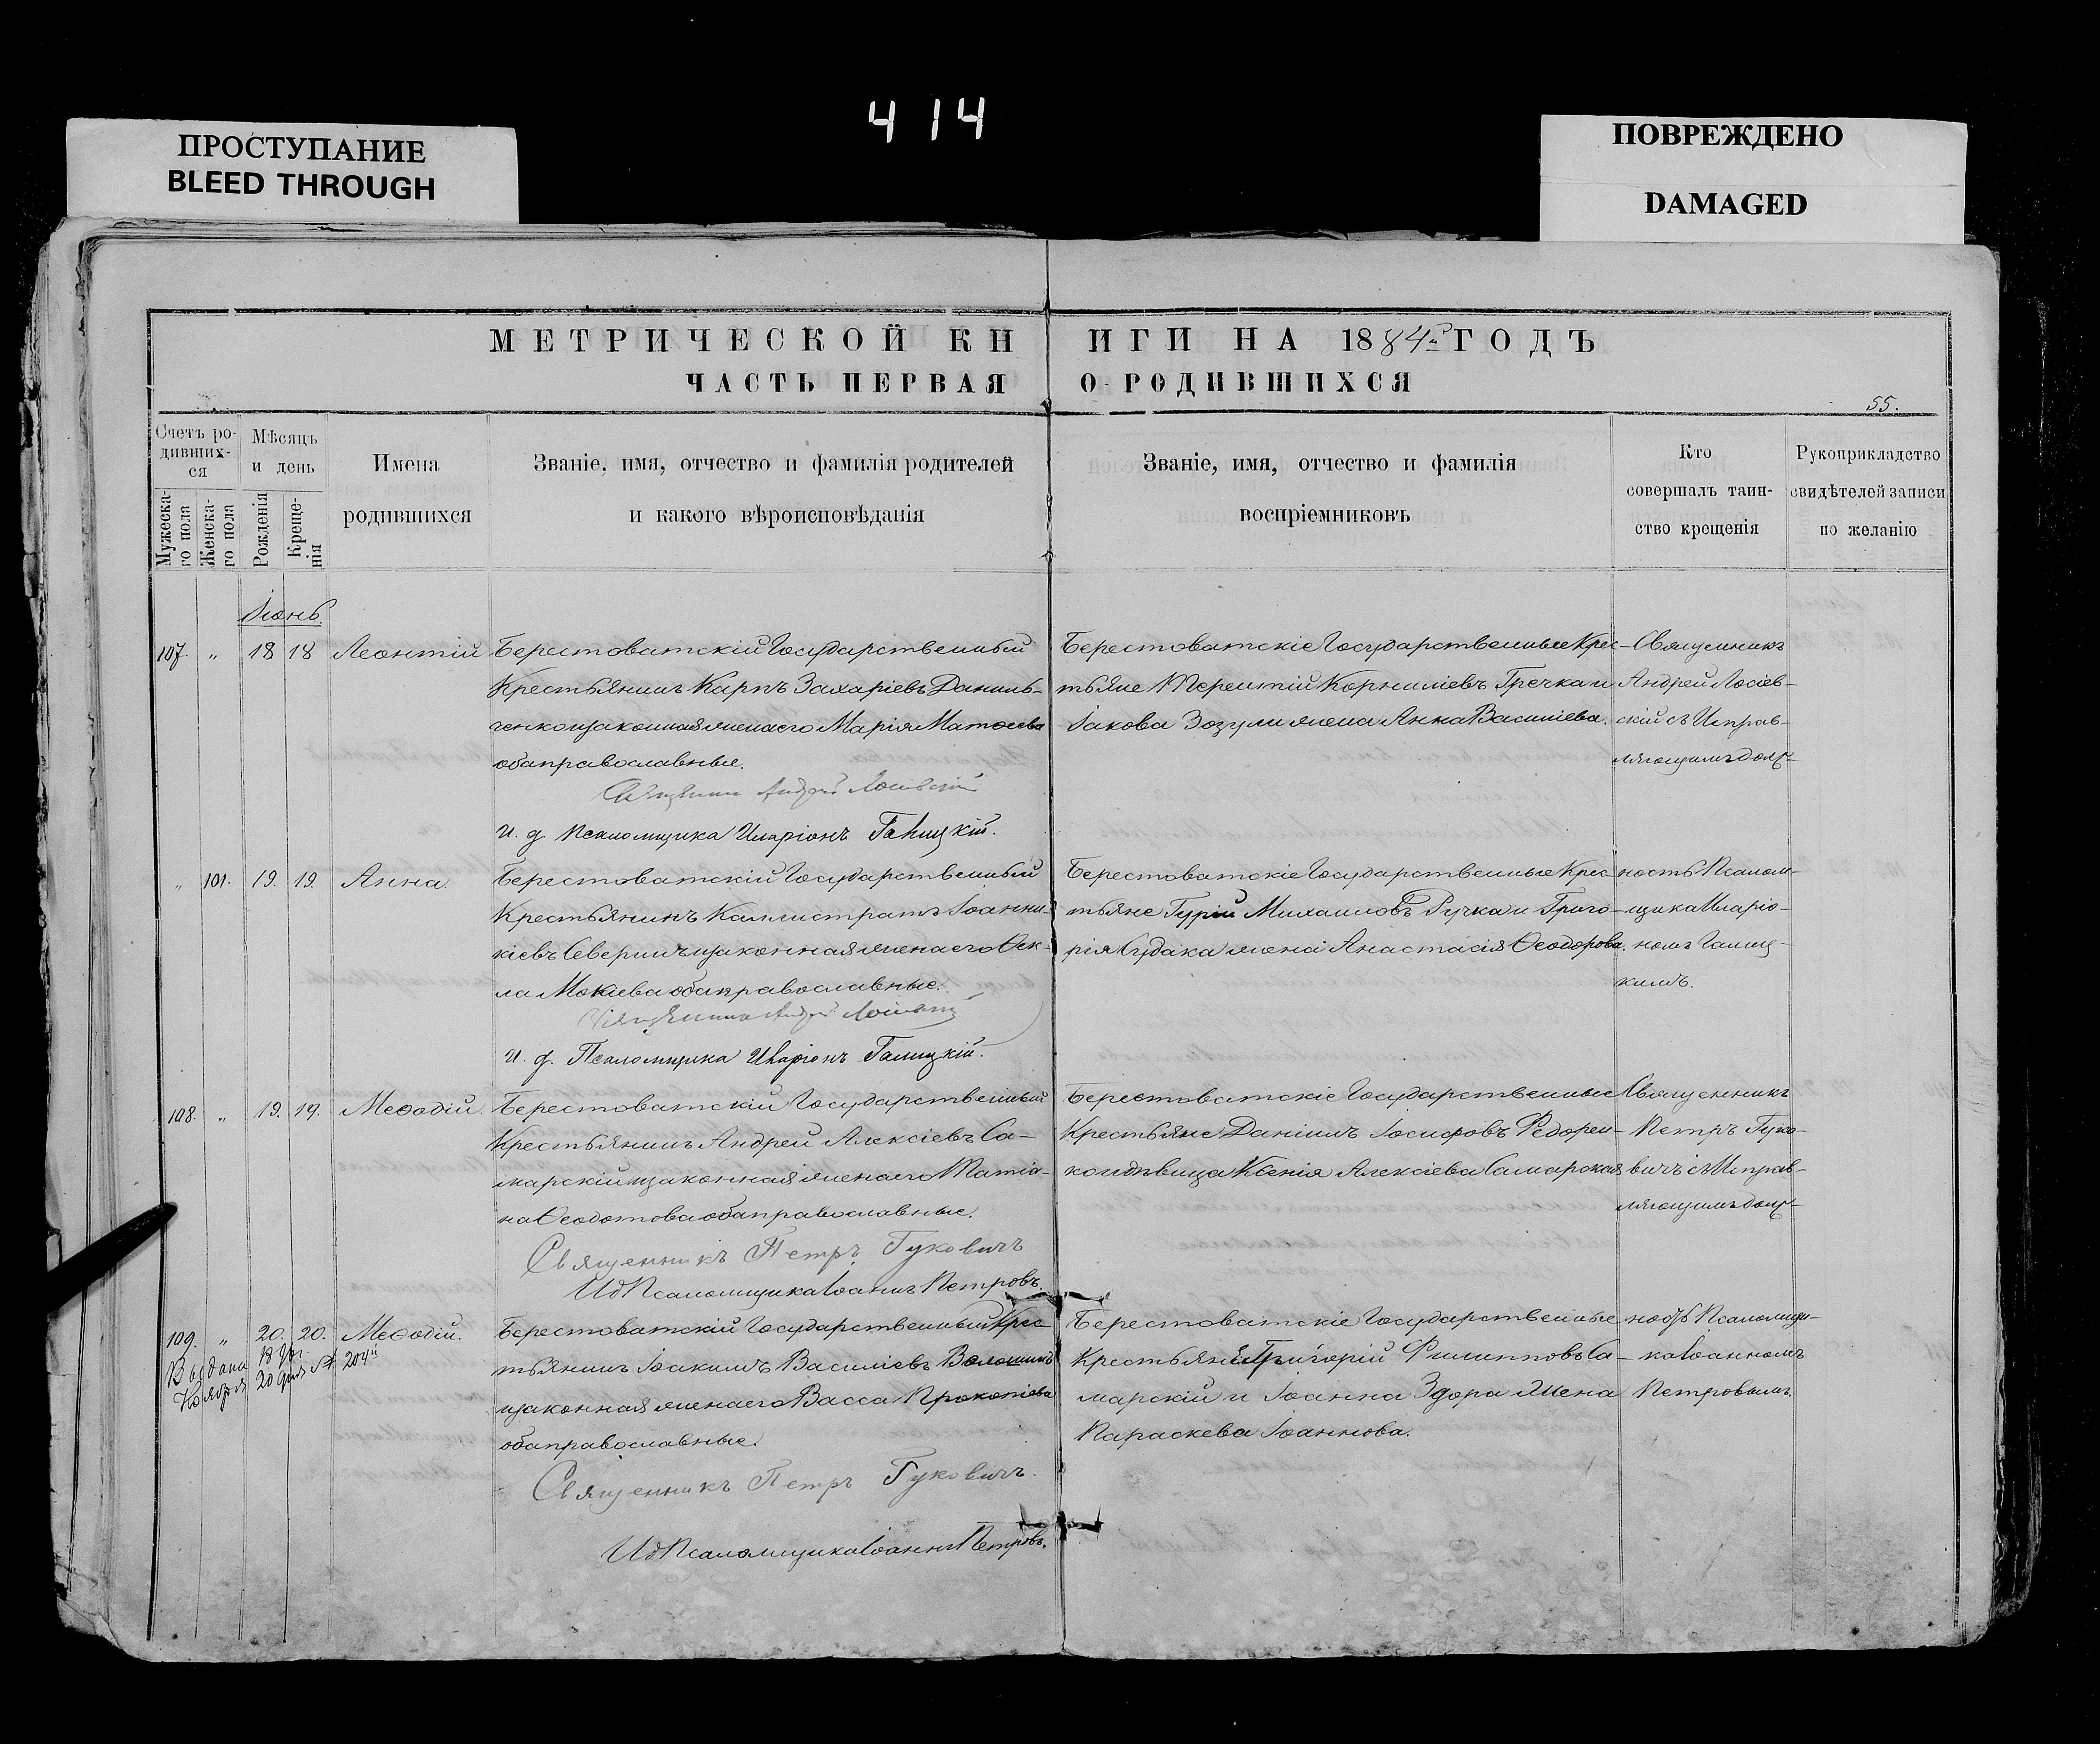 4 14
ПРОСТУПАНИЕ
BLEED THROUGH
ПОВРЕЖДЕНО
DAMAGED
МЕТРИЧЕСКОЙ КНИГИ НА 1884й ГОДЪ
ЧАСТЬ ПЕРВАЯ О РОДИВШИХСЯ
55.
Счетъ ро-
дивших-
ся
Мужеска-
го пола
Женска-
го пола
Мѣсяцъ
и день
Рожденія
Креще-
нія
Имена
родившихся
Званіе, имя, отчество и фамилія родителей
и какого вѣроисповѣданія
Званіе, имя, отчество и фамилія
воспріемниковъ
Кто
совершалъ таин-
ство крещенія
Рукоприкладство
свидѣтелей записи
по желанію
Іюнь.
107. „ 18 18 Леонтій
Берестоватскій Государственный
Крестьянинъ Карпъ Захаріевъ Даниль-
ченко изаконная женаего Марія Матѳеева
обаправославные.
Священникъ Андрей Лосіевскій
И. д. псаломщика Иларіонъ Галицкій.
Берестоватскіе Государственные Крес-
тьяне Терентій Корниліевъ Гречка и
Іакова Зозули жена Анна Василіева.
Священникъ
Андрей Лосіев-
скій съ Исправ-
ляющимъ долж-
„ 101. 19. 19. Анна.
Берестоватскій Государственный
Крестьянинъ Каллистратъ Іоанни-
кіевъ Северинъ изаконная женаего Ѳек-
ла Мокіева обаправославные.
Священникъ Андрей Лосіевскій
И. д. Псаломщика Иларіонъ Галицкій.
Берестоватскіе Государственные Крес-
тьяне Гурій Михаиловъ Ручка и Григо-
рія Судака жена Анастасія Ѳеодорова.
ность Псалом-
щика Иларіо-
номъ Галиц-
кимъ.
108. „ 19. 19. Меѳодій.
Берестоватскій Государственный
Крестьянинъ Андрей Алексіевъ Са-
марскій изаконная женаего Татіа-
на Ѳеодотова обаправославные.
Священникъ Петръ Гуковичъ
ИдПсаломщика Іоаннъ Петровъ.
Берестоватскіе Государственные
Крестьяне Даніилъ Іосифовъ Федорен-
ко идѣвица Ксенія Алексіева Самарская
Священникъ
Петръ Гуко-
вичъ съ Исправ-
ляющимъ долж-
109. „ 20. 20. Меѳодій.
Берестоватскій Государственный Крес-
тьянинъ Іоакимъ Василіевъ Волошинъ
изаконная женаего Васса Прокопіева
обаправославные.
Священникъ Петръ Гуковичъ.
ИдПсаломщика Іоаннъ Петровъ.
Берестоватскіе Государственные
Крестьяне Григорій Филипповъ Са-
марскій и Іоанна Здора жена
Параскева Іоаннова.
ность Псаломщи-
ка Іоанномъ
Петровымъ.
Выдана
20 № 204й